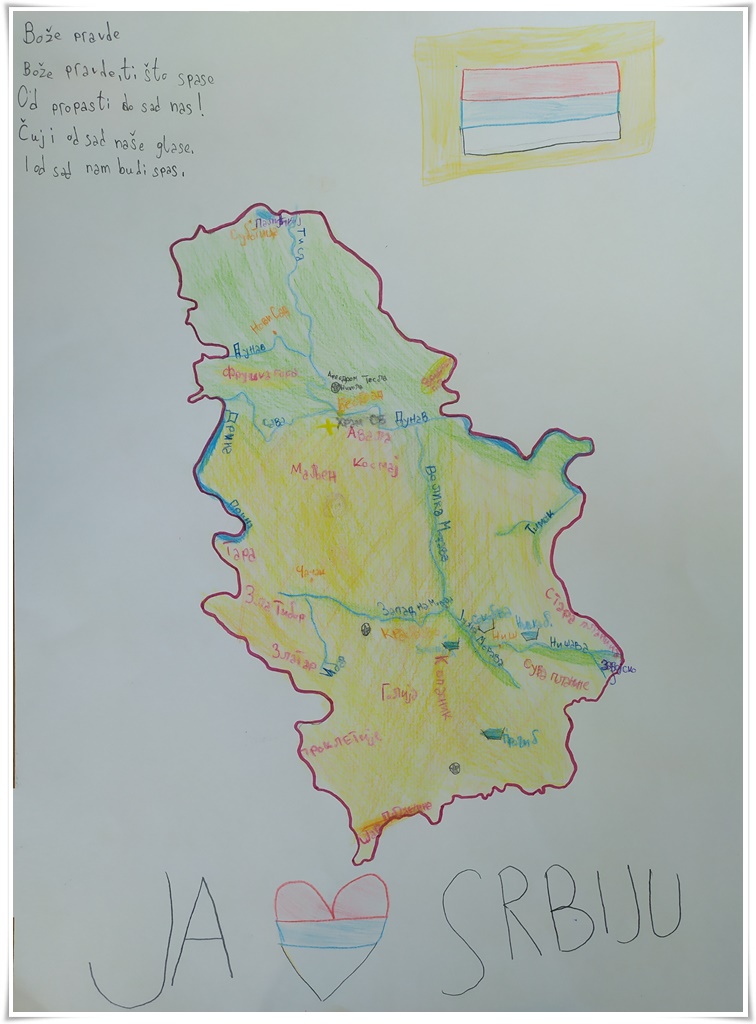 Bože pravde
Bože pravde, ti što spase
Od propasti do sad nas!
Čuj i od sad naše glase.
I od sad nam budi spas.
Тиса
Нови Сад
Дунав
Фрушка гора
Аеродром
Тесла
Београд
Сава
Храм Св
Дунав
Авала
Космај
Маљен
Дрина
Велика Морава
Тимок
Тара
Чачак
Златибор
Западна Мор
Стара планина
Ниш
Нишава
Златар
Копаоник
Сува планине
Голија
Проклетије
JA SRBIJU